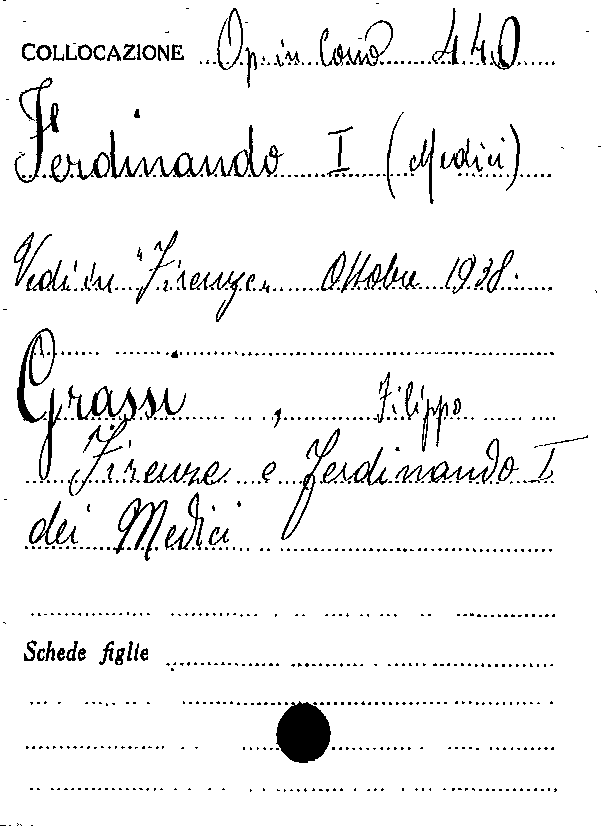 COLLOCAZIONE Op. in Corso 440
Ferdinando I (Medici)
Vedi in "Firenze" Ottobre 1938.
Grassi, Filippo
Firenze e Ferdinando I
dei Medici
Schede figlie